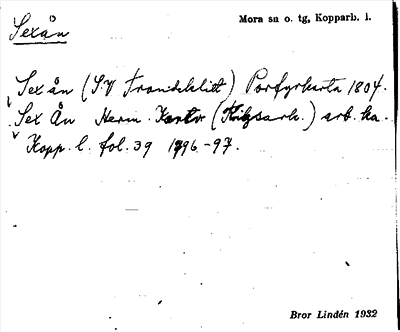 Sexån
Mora sn o. tg, Kopparb. l.
Sexån (S.V Trondsklitt) Porfyrkarta 1804.
Sex Ån Herm. Kartv (Riksark.) arb. ka.
Kopp. l. fol. 39 1796-97.
Bror Lindén 1932